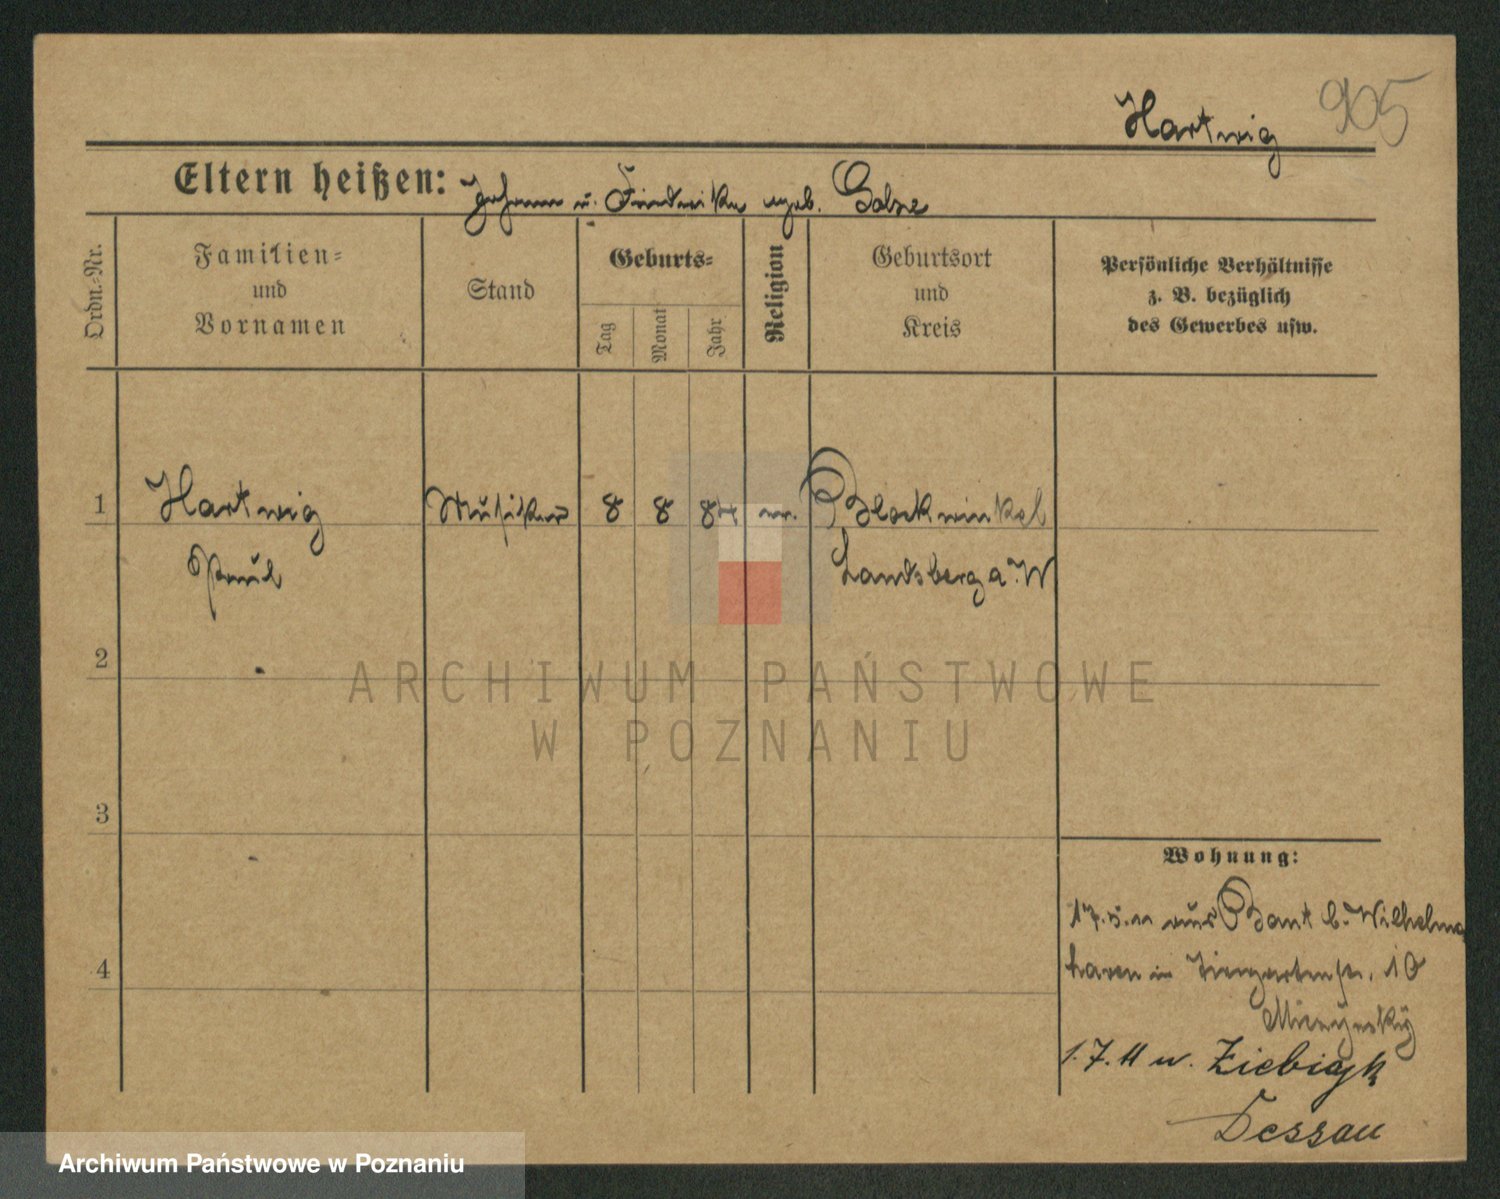 Hartwig 905
Eltern heißen: Johann u. Friederike geb. Golze
Ordn.-Nr.
Familien-
und
Vornamen
Stand
Geburts-
Tag
Monat
Jahr
Religion
Geburtsort
und
Kreis
Persönliche Verhältnisse
z. B. bezüglich
des Gewerbes usw.
1 Hartwig Musiker 8 8 84 ev. Blockwinkel
Paul Landsberg a. W
2
3
4
Wohnung:
17.5.11 aus Bant b. Wilhelms
haven in Tiergartenstr. 10
1.7.11 n. Ziebigk
Dessau
ARCHIWUM PAŃSTWOWE
W POZNANIU
Archiwum Państwowe w Poznaniu